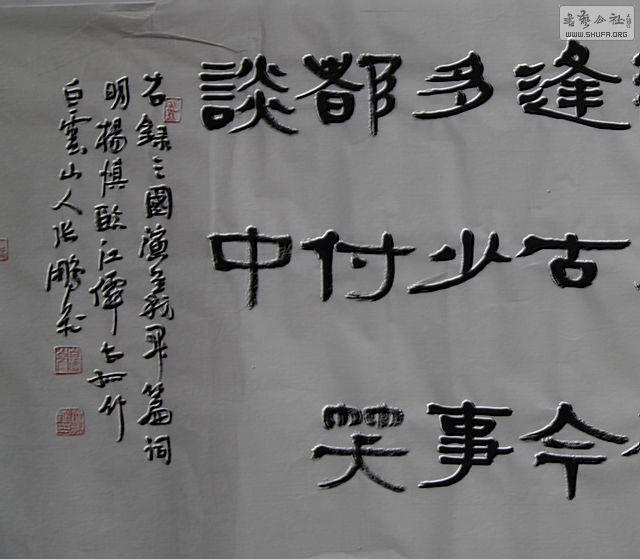 書藝公社
WWW.SHUFA.ORG
逢古今
多少事
都付笑
談中
右録三國演義開篇詞
明楊慎臨江僊
白雲山人張鵬